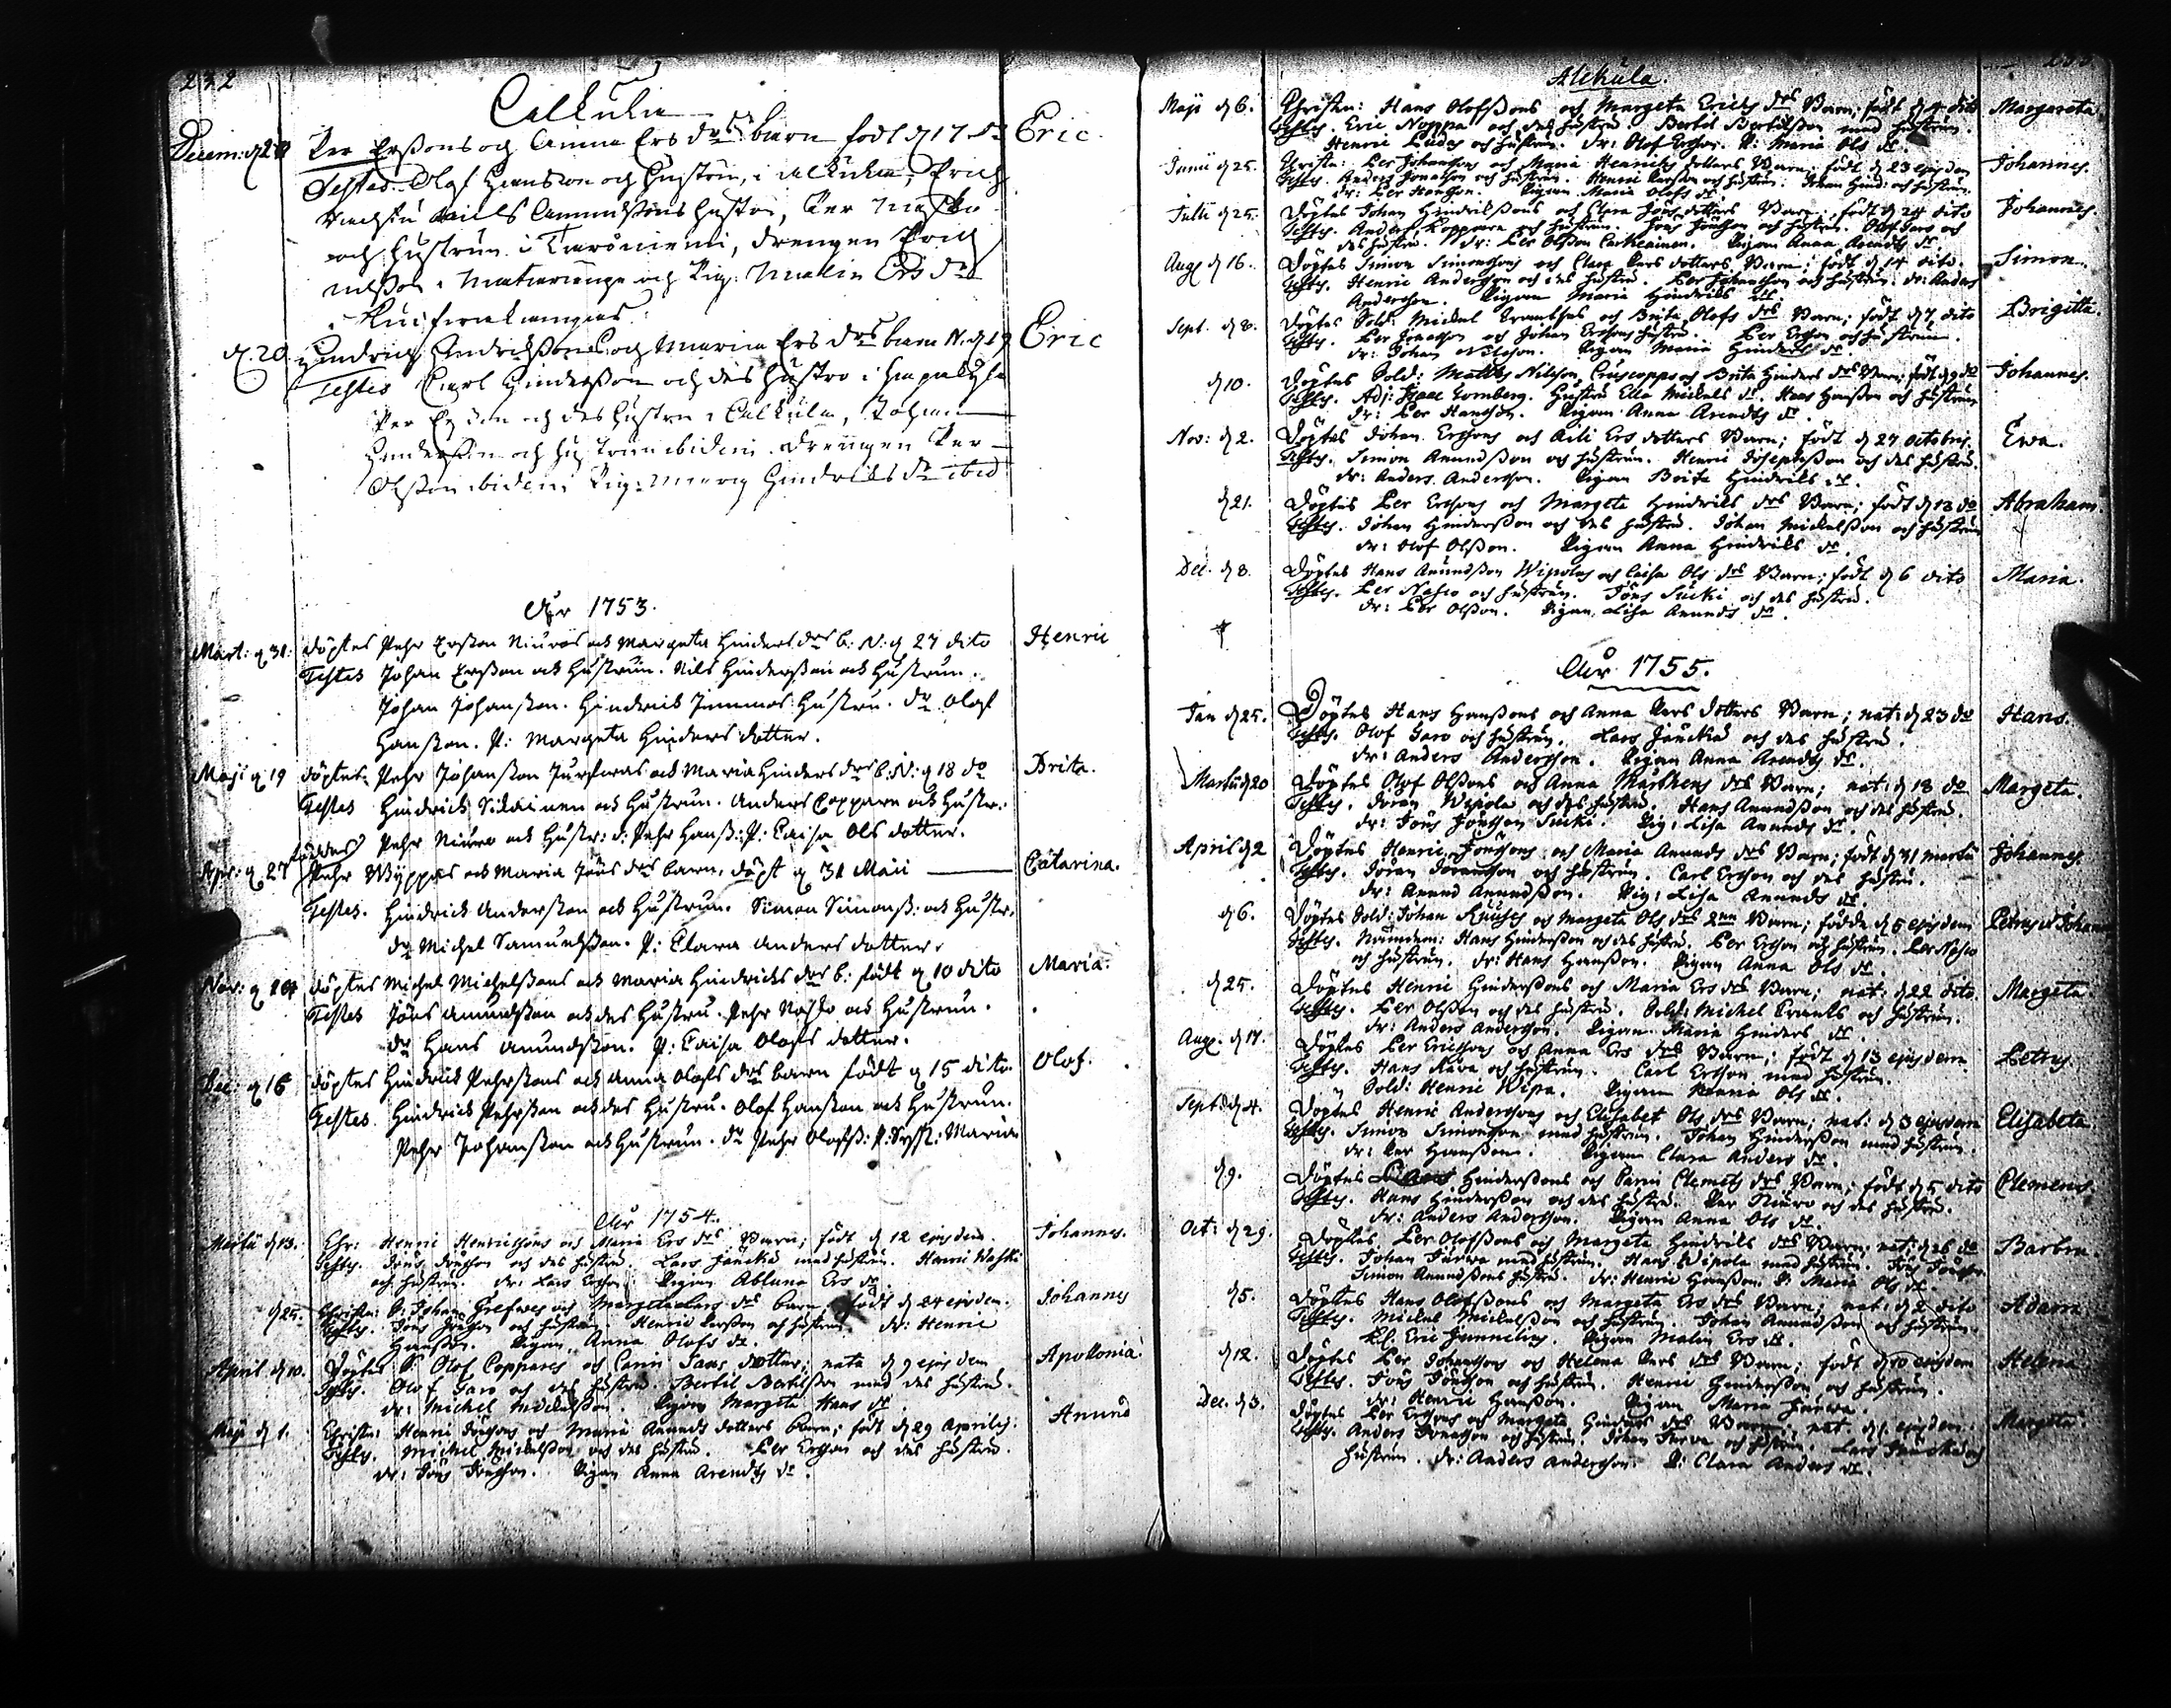 232
Calkula
Decem: d 20 Per Erßons og Anna Ers drs barn födt d 17 Eric
Testes. Olof Hansson och Hustru, i alkula, Erich
Nils Amundßons hustro, Per
och hustrun i Turoniemi, drengen Erich
Nilßon i Matarenge och Pig. Malin Ers dr

d. 20 Hindrich Hindrichßons og Maria Ers drs barn N. d 19 Eric
Testes Carl Hinderßon och des hustro i Haapakyla
Per och des hustru i Calkula, Johan
Hinderßon och hustrun ibidem. drengen Per
Olsson ibidem Pig: Maria Hindriks dr ibid
Åhr 1753.
Mart: d 31: döptes Pehr Erßon Niuros och Margeta Hinders drs b: N: d 27 dito Henric
Testes Johan Erßon och Hustrun. Nils Hinderßon och Hustrun.
Johan Johanßon. Hindrick Hustru. dr Olof
Hanßon. P: Margeta Hinders dotter.
Maji d 19 döptes Pehr Johanßon och Maria Hinders drs b: N: d 18 do Brita.
Testes Hindrick Sikainen och Hustrun. Anders Coppare och Hustr:
Pehr Niuro och Hustr: d: Pehr Hanß: P: Caisa Ols dotter.
Apr: d 27 föddes Pehr Wyppas och Maria Jöns drs barn, döpt d 31 Maii Catarina.
Testes. Hindrick Anderßon och Hustrun. Simon Simonß: och Hustr:
dr Michel Samuelßon. P: Clara Anders dotter.
Nov: d döptes Michel Michelßons och Maria Hindricks drs b: födt d 10 dito Maria.
Testes Jöns Amundßon och des Hustru. Pehr Nasko och Hustrun.
dr Hans Amundßon. P: Caisa Olofs dotter.
Dec: d 16 döptes Hindrick Pehrßons och Anna Olofs drs barn födt d 15 dito. Olof.
Testes. Hindrick Pehrßon och des Hustru. Olof Hanßon och Hustrun.
Pehr Johanßon och Hustrun. dr Pehr Olofß: P: Maria
Åhr 1754.
Martii d 13. Chr: Henric Henricßons och Maria Ers drs Barn; födt d 12 ejusdem. Johannes.
Testes. Jöns Jönsson och des hustru. Lars Jäncke med hustru. Henric
och hustrun. dr: Lars Ersson Pigan Abluna Ers dr.
d 25. Christn: S: Johan Grefwes och Margeta Lars drs barn, födt d 24 ejusdem. Johannes
Testes. Jöns Jönsson och hustrun. Henric Larsson och hustrun. dr: Henric
Hansson. Pigan Anna Olofs dr.
April d 10. Döptes S. Olof Coppares och Carin Lars dotter; nata d 9 ejusdem Apollonia.
Testes. Olof Saro och des hustru. Bertil Bertilßon med des hustru.
dr: Michel Mickelßon. Pigan Margeta Hans dr
Maji d 1. Christn: Henric Jönsons och Maria Anunds dotters barn; födt d 29 Aprilis. Anund
Testes. Michel Mickelßon och des hustru. Per Ersson och des hustru.
dr: Jöns Jönsson. Pigan Anna Arendts dr.
Alkula.
Maji d 6. Christn: Hans Olofßons och Margeta Ericks drs Barn; födt d 4 dito Margareta.
Testes. Eric Noppa och des hustru Bertil Bertilßon med hustrun.
Henric och hustrun. dr: Olof Ersson. P: Maria Ols dr.
Junii d 25. Christn: Per Johanssons och Maria Henricks dotters Barn, födt d 23 ejusdem Johannes.
Testes. Anders Jonasson och hustrun. Henric Larsson och hustrun. Johan Hind: och hustrun.
dr: Per Hansson. Pigan Maria Olofs dr.
Julii d 25. Döptes Johan Hindrikßons och Clara Jöns dotters Barn, födt d 24 dito Johannes.
Testes. Anders Koppare och hustrun. Jöns Jönsson och hustrun. Olof Saro och
des hustru. dr: Per Olßon Pigan Anna Arendts dr.
Aug. d 16. Döptes Simon Simonssons och Clara Pers dotters Barn; födt d 14 dito. Simon.
Testes. Henric Andersson och des hustru. Per Johansson och hustrun. dr: Anders
Andersson. Pigan Maria Hindriks dr.
Sept. d 8. Döptes Sold: Mickel och Brita Olofs drs Barn; födt d 7 dito Brigitta.
Testes. Per Jönsson och Johan Erssons hustru. Per Ersson och hustrun.
dr: Johan Nilsson. Pigan Maria Hinders dr.
d 10. Döptes Sold: Matths Nilßon och Brita Hinders drs Barn; födt d 9 do Johannes.
Testes. Adj: Isaac Tornberg. Hustru Ella Mickels dr. Hans Hanßon och hustrun
dr: Per Hansson. Pigan Anna Arendts dr.
Nov: d 2. Döptes Johan Erssons och Aili Ers dotters Barn; födt d 27 octobris. Ewa.
Testes. Simon Anundßon och hustrun. Henric Josephßon och des hustru.
dr: Anders Andersson. Pigan Brita Hindriks dr.
d 21. Döptes Per Erssons och Margeta Hindriks drs Barn; födt d 13 do Abraham.
Testes. Johan Hinderßon och des hustru. Johan Mickelßon och hustrun
dr: Olof Olßon. Pigan Anna Hindriks dr.
Dec. d 8. Döptes Hans Anundßon Wipolas och Caisa Ols drs Barn; födt d 6 dito Maria.
Testes. Per Nasco och hustrun. Jöns Sucki och des hustru.
dr: Per Olßon. Pigan Lisa Anunds dr.
Åhr 1755.
Jan d 25. Döptes Hans Hanßons och Anna Pers dotters Barn; nat: d 23 do Hans.
Testes. Olof Saro och hustrun. Lars Jäncke och des hustru.
dr: Anders Andersson. Pigan Anna Arendts dr.
Martii d 20 Döptes Olof Olßons och Anna drs Barn; nat: d 18 do Margeta.
Testes. Jöran Wipola och des hustru. Hans Anundßon och des hustru.
dr: Jöns Jönsson Sucki. Pig: Lisa Anunds dr.
April d 2 Döptes Henric Jönssons och Maria Anunds drs Barn; födt d 31 martii Johannes.
Testes. Jöran Jöransson och hustrun. Carl Ersson och des hustru.
dr: Anund Anundßon. Pig: Lisa Anunds dr.
d 6. Döptes Sold: Johan och Margeta Ols drs 2ne Barn; födde d 5 ejusdem Petrus et Johan
Testes. Nämdem: Hans Hinderßon och des hustru. Per Ersson och hustrun. Per Nasco
och hustrun. dr: Hans Hanßon. Pigan Anna Ols dr.
d 25. Döptes Henric Hinderßons och Maria Ers drs Barn; nat: d 22 dito. Margeta.
Testes. Per Olßon och des hustru. Sold: Michel och hustrun.
dr: Anders Andersson. Pigan Maria Hinders dr.
Aug. d 17. Döptes Per Ericssons och Anna Ers drs Barn; födt d 13 ejusdem Petrus.
Testes. Hans Rava och hustrun. Carl Ersson med hustrun.
Sold: Henric Wipa. Pigan Maria Ols dr.
Sept: d 4. Döptes Henric Anderssons och Elisabet Ols drs Barn; nat: d 3 ejusdem Elisabeta
Testes. Simon Simonsson med hustrun. Johan Hinderßon med hustrun.
dr: Per Hanßon. Pigan Clara Anders dr.
d 9. Döptes Hinderßons och Carin Clemets drs Barn; födt d 5 dito Clemens.
Testes. Hans Hinderßon och des hustru. Per Niuro och des hustru.
dr: Anders Andersson. Pigan Anna Ols dr.
Oct: d 29. Döptes Per Olofßons och Margeta Hindriks drs Barn; nat: d 26 do Barbra.
Testes. Johan Järwa med hustrun. Hans Wipola med hustrun. Jöns
Simon Anundßons hustru. dr: Henric Hanßon. P: Maria Ols dr.
d 5. Döptes Hans Olofßons och Margeta Ers drs Barn; nat: d 2 dito Adam
Testes. Mickel Mickelßon och hustrun. Johan Anundßon och hustrun.
Eric Gunnelius. Pigan Malin Ers dr.
d 12. Döptes Per Johanssons och Helena Pers drs Barn; födt d 10 ejusdem Helena
Testes. Jöns Jönsson och hustrun. Henric Hinderßon och hustrun.
dr: Henric Hanßon. Pigan Maria
Dec. d 3. Döptes Per Erssons och Margeta Hinders drs Barn, nat d 1 ejusdem. Margeta
Testes. Anders Jonasson och hustrun. Johan och hustrun. Lars Jäncke och
hustrun. dr: Anders Andersson. P: Clara Anders dr.